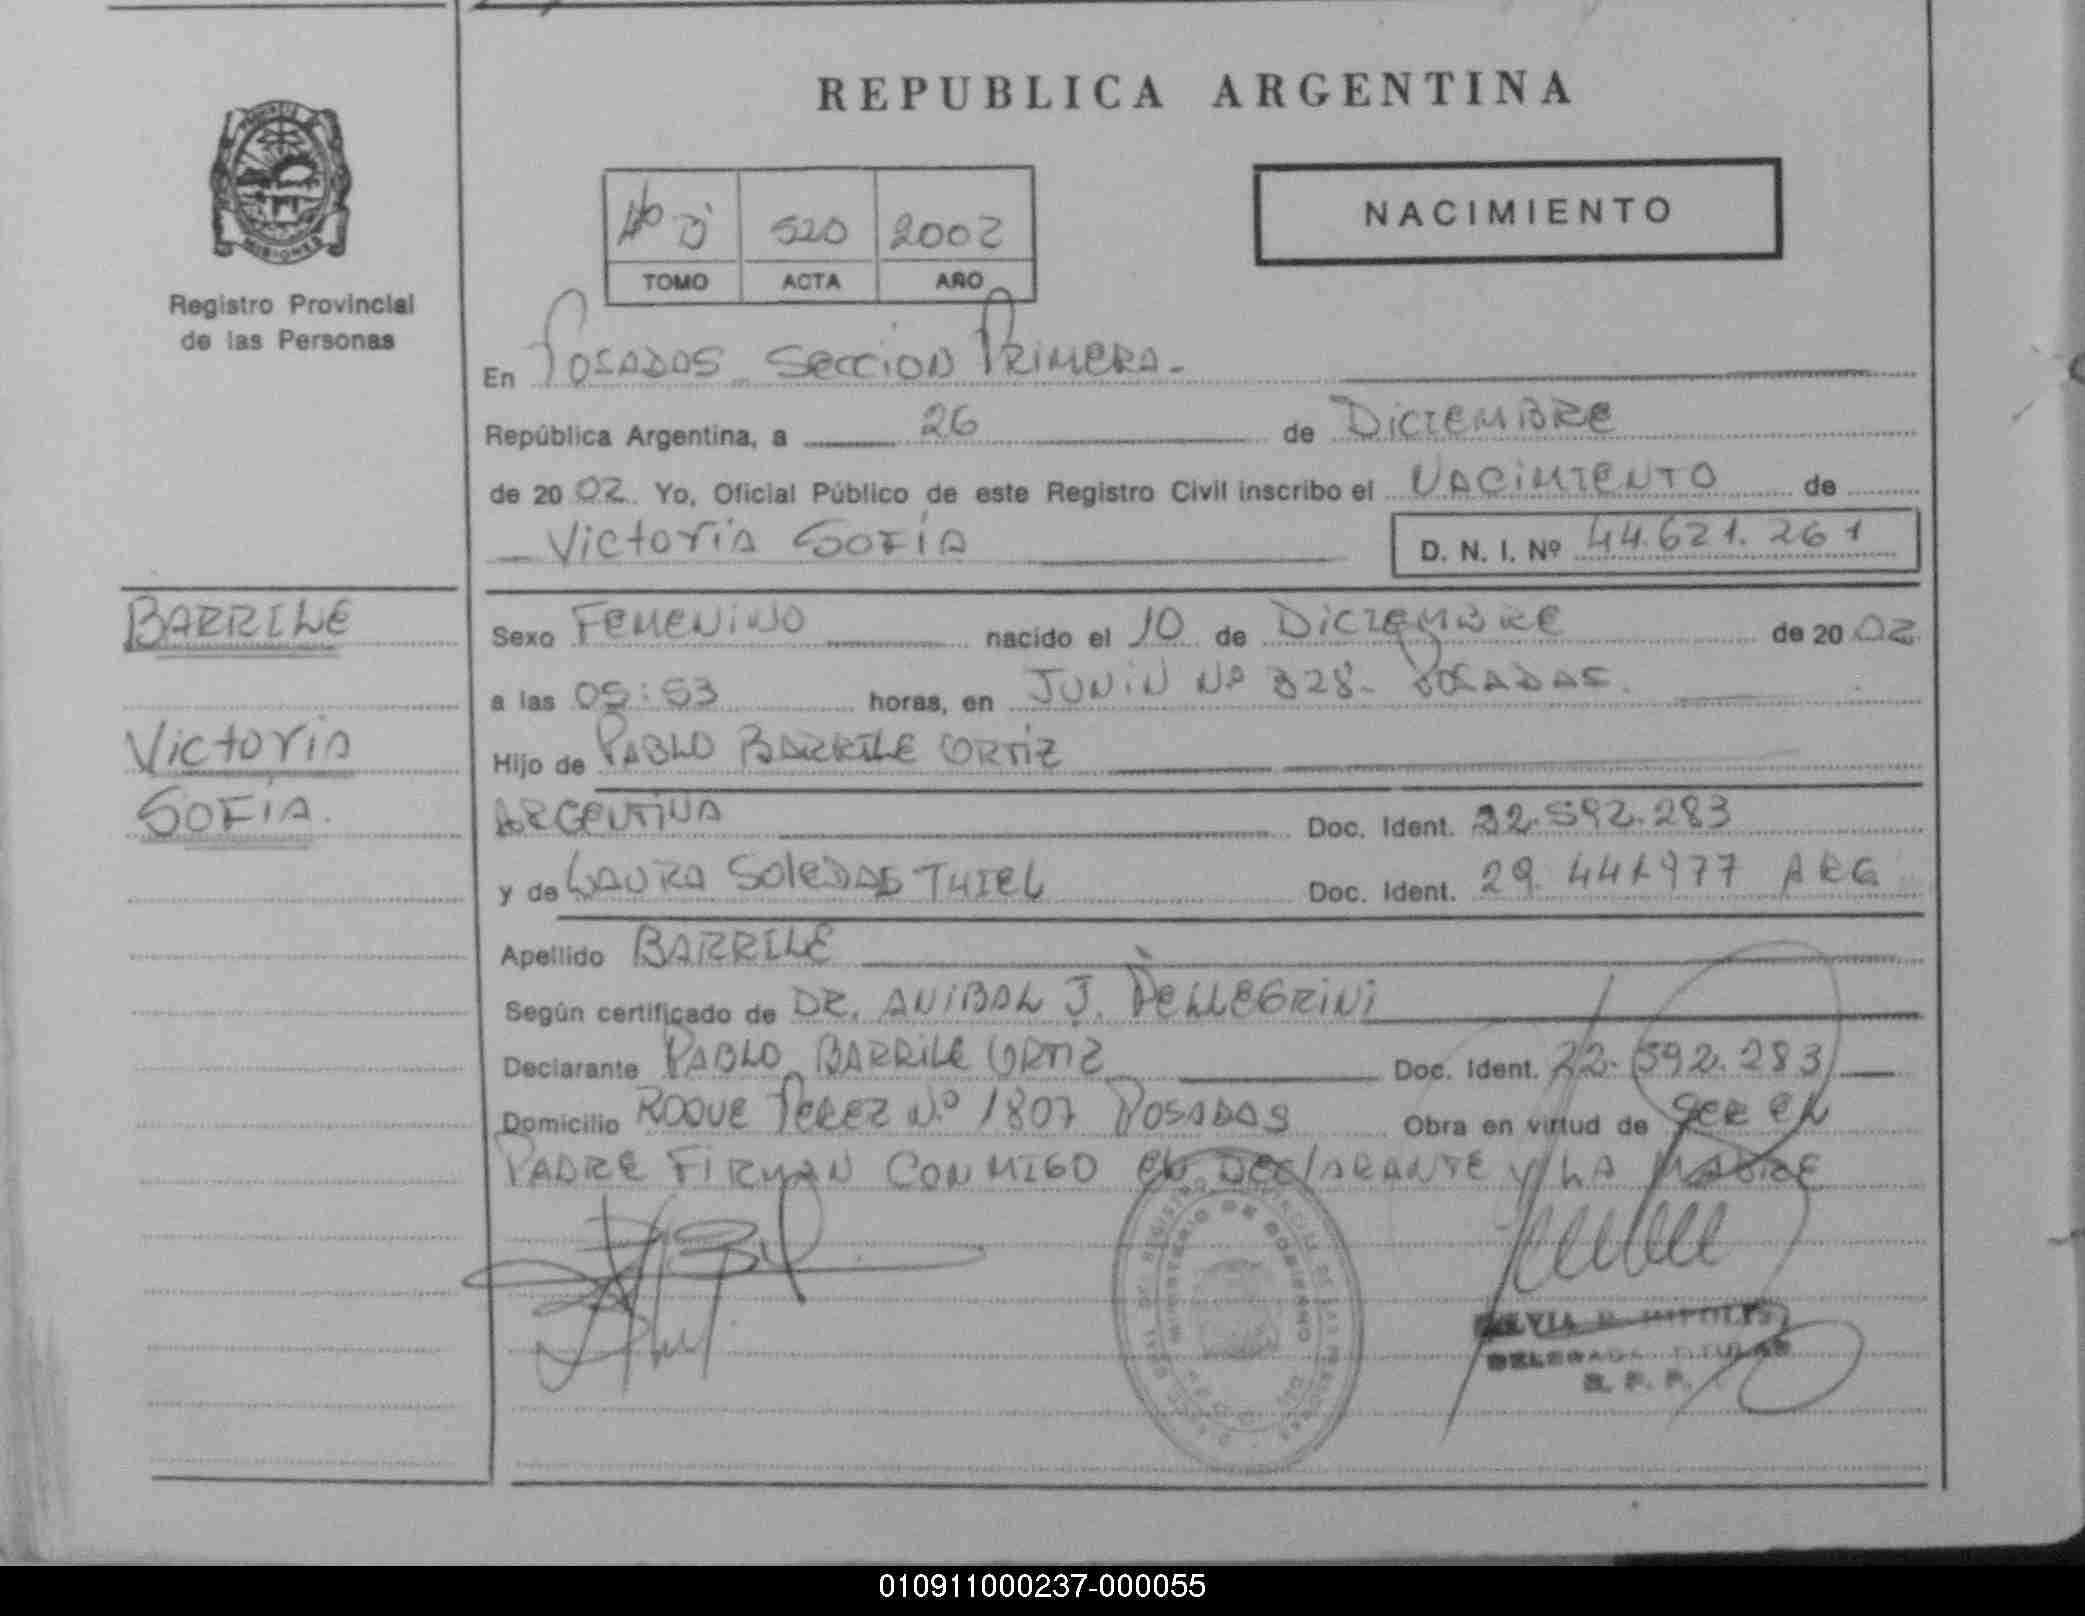 REPUBLICA ARGENTINA
NACIMIENTO
520 2002
TOMO ACTA AÑO
PROVINCIA DE
MISIONES
Registro Provincial
de las Personas
En POSADAS SECCION PRIMERA.-
República Argentina, a 26 de DICIEMBRE
de 20 02. Yo, Oficial Público de este Registro Civil inscribo el NACIMIENTO de
Victoria SOFIA D. N. I. Nº 44.621.261
BARRILE
Victoria
SOFIA.
Sexo FEMENINO nacido el 10 de DICIEMBRE de 20 02
a las 05:53 horas, en JUNIN Nº 328- POSADAS.
Hijo de PABLO BARRILE ORTIZ
ARGENTINA Doc. Ident. 22.592.283
y de LAURA SOLEDAD THIEL Doc. Ident. 29.441.977 ARG
Apellido BARRILE
Según certificado de DR. ANIBAL J. PELLEGRINI
Declarante PABLO BARRILE ORTIZ Doc. Ident. 22.592.283
Domicilio ROQUE PEREZ Nº 1807 POSADAS Obra en virtud de SER EL
PADRE FIRMAN CONMIGO EL DECLARANTE Y LA MADRE
MINISTERIO DE GOBIERNO
DELEGADA TITULAR
R. P. P.
010911000237-000055